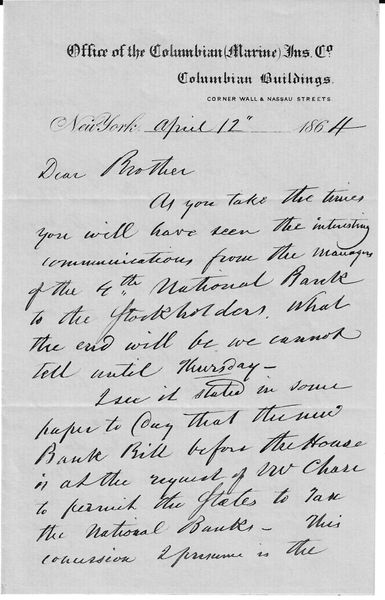 Office of the Columbian (Marine) Ins. Co.
Columbian Buildings.
CORNER WALL & NASSAU STREETS.
New York. April 12" 1864
Dear Brother
As you take the times
you will have seen the interesting
communications from the managers
of the 4th National Bank
to the Stockholders. What
the end will be we cannot
tell until Thursday —
I see it stated in some
paper to day that the new
Bank Bill before the House
is at the request of Mr Chase
to permit the States to Tax
the National Banks — This
concession I presume is the